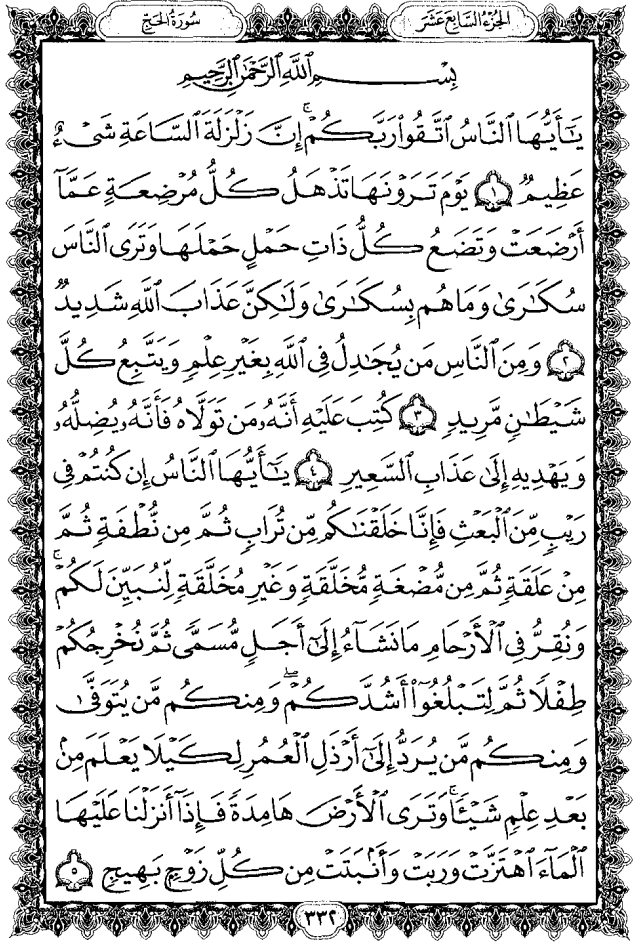 الجزء السابع عشر سورة الحج
بِسْمِ ٱللَّهِ ٱلرَّحْمَٰنِ ٱلرَّحِيمِ
يَٰٓأَيُّهَا ٱلنَّاسُ ٱتَّقُوا۟ رَبَّكُمْ ۚ إِنَّ زَلْزَلَةَ ٱلسَّاعَةِ شَىْءٌ
عَظِيمٌ ١ يَوْمَ تَرَوْنَهَا تَذْهَلُ كُلُّ مُرْضِعَةٍ عَمَّآ
أَرْضَعَتْ وَتَضَعُ كُلُّ ذَاتِ حَمْلٍ حَمْلَهَا وَتَرَى ٱلنَّاسَ
سُكَٰرَىٰ وَمَا هُم بِسُكَٰرَىٰ وَلَٰكِنَّ عَذَابَ ٱللَّهِ شَدِيدٌ
٢ وَمِنَ ٱلنَّاسِ مَن يُجَٰدِلُ فِى ٱللَّهِ بِغَيْرِ عِلْمٍ وَيَتَّبِعُ كُلَّ
شَيْطَٰنٍ مَّرِيدٍ ٣ كُتِبَ عَلَيْهِ أَنَّهُۥ مَن تَوَلَّاهُ فَأَنَّهُۥ يُضِلُّهُۥ
وَيَهْدِيهِ إِلَىٰ عَذَابِ ٱلسَّعِيرِ ٤ يَٰٓأَيُّهَا ٱلنَّاسُ إِن كُنتُمْ فِى
رَيْبٍ مِّنَ ٱلْبَعْثِ فَإِنَّا خَلَقْنَٰكُم مِّن تُرَابٍ ثُمَّ مِن نُّطْفَةٍ ثُمَّ
مِنْ عَلَقَةٍ ثُمَّ مِن مُّضْغَةٍ مُّخَلَّقَةٍ وَغَيْرِ مُخَلَّقَةٍ لِّنُبَيِّنَ لَكُمْ ۚ
وَنُقِرُّ فِى ٱلْأَرْحَامِ مَا نَشَآءُ إِلَىٰٓ أَجَلٍ مُّسَمًّى ثُمَّ نُخْرِجُكُمْ
طِفْلًا ثُمَّ لِتَبْلُغُوٓا۟ أَشُدَّكُمْ ۖ وَمِنكُم مَّن يُتَوَفَّىٰ
وَمِنكُم مَّن يُرَدُّ إِلَىٰٓ أَرْذَلِ ٱلْعُمُرِ لِكَيْلَا يَعْلَمَ مِنۢ
بَعْدِ عِلْمٍ شَيْـًٔا ۚ وَتَرَى ٱلْأَرْضَ هَامِدَةً فَإِذَآ أَنزَلْنَا عَلَيْهَا
ٱلْمَآءَ ٱهْتَزَّتْ وَرَبَتْ وَأَنۢبَتَتْ مِن كُلِّ زَوْجٍۭ بَهِيجٍ ٥
٣٣٢